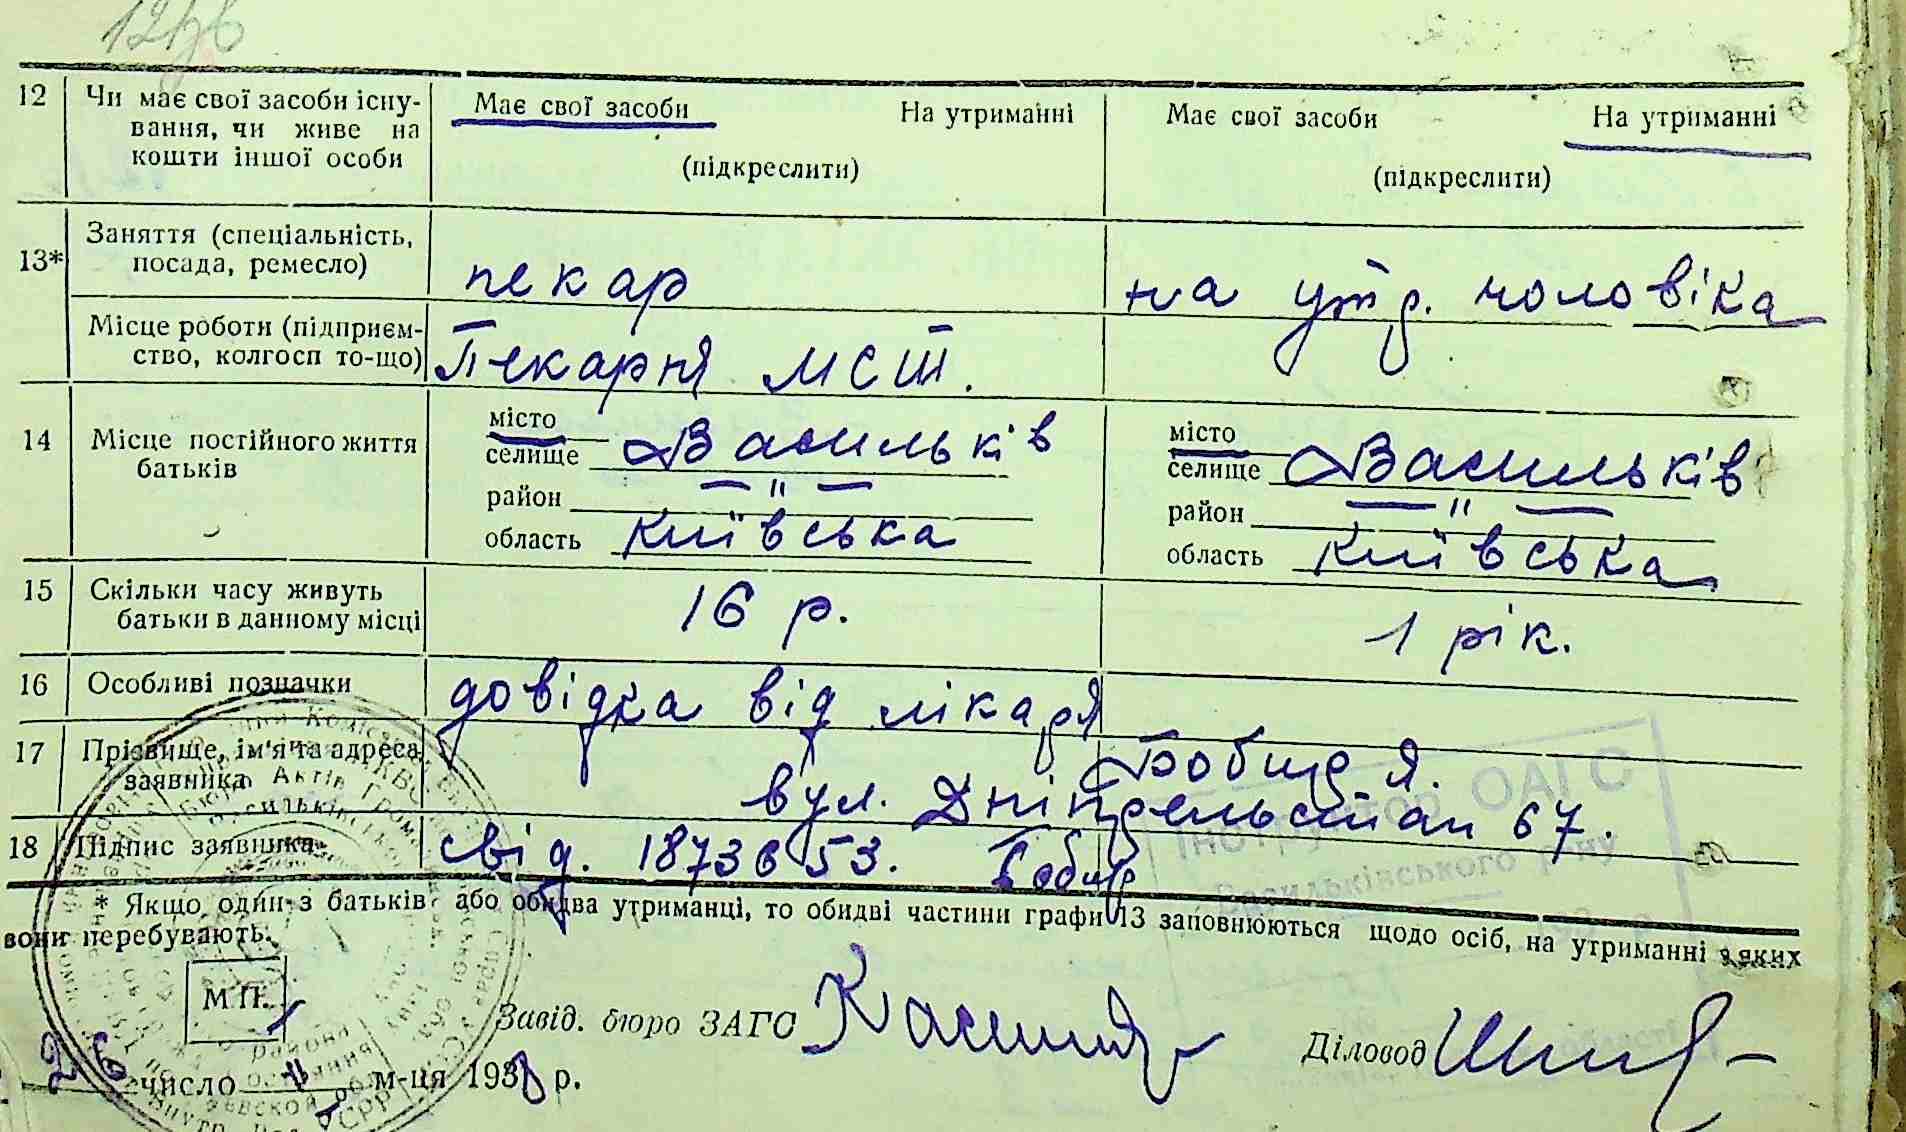 12
Чи має свої засоби існу-
вання, чи живе на
кошти іншої особи
Має свої засоби На утриманні
(підкреслити)
Має свої засоби На утриманні
(підкреслити)
13*
Заняття (спеціальність,
посада, ремесло)
пекар
на утр. чоловіка
Місце роботи (підприєм-
ство, колгосп то-що)
Пекарня МСТ.
14
Місце постійного життя
батьків
місто
селище Васильків
район —"—
область Київська
місто
селище Васильків
район —"—
область Київська
15
Скільки часу живуть
батьки в данному місці
16 р.
1 рік.
16
Особливі позначки
довідка від лікаря
17
Прізвище, ім'я та адреса
заявника
Бобир Я.
вул. Дніпрельстан 67.
18
Підпис заявника
свід. 1873653. Бобир
* Якщо один з батьків або обидва утриманці, то обидві частини графи 13 заповнюються щодо осіб, на утриманні яких
вони перебувають.
М.П.
Завід. бюро ЗАГС
Діловод
26 число м-ця 1938 р.
Інструктор ОАГС
Васильківського р-ну